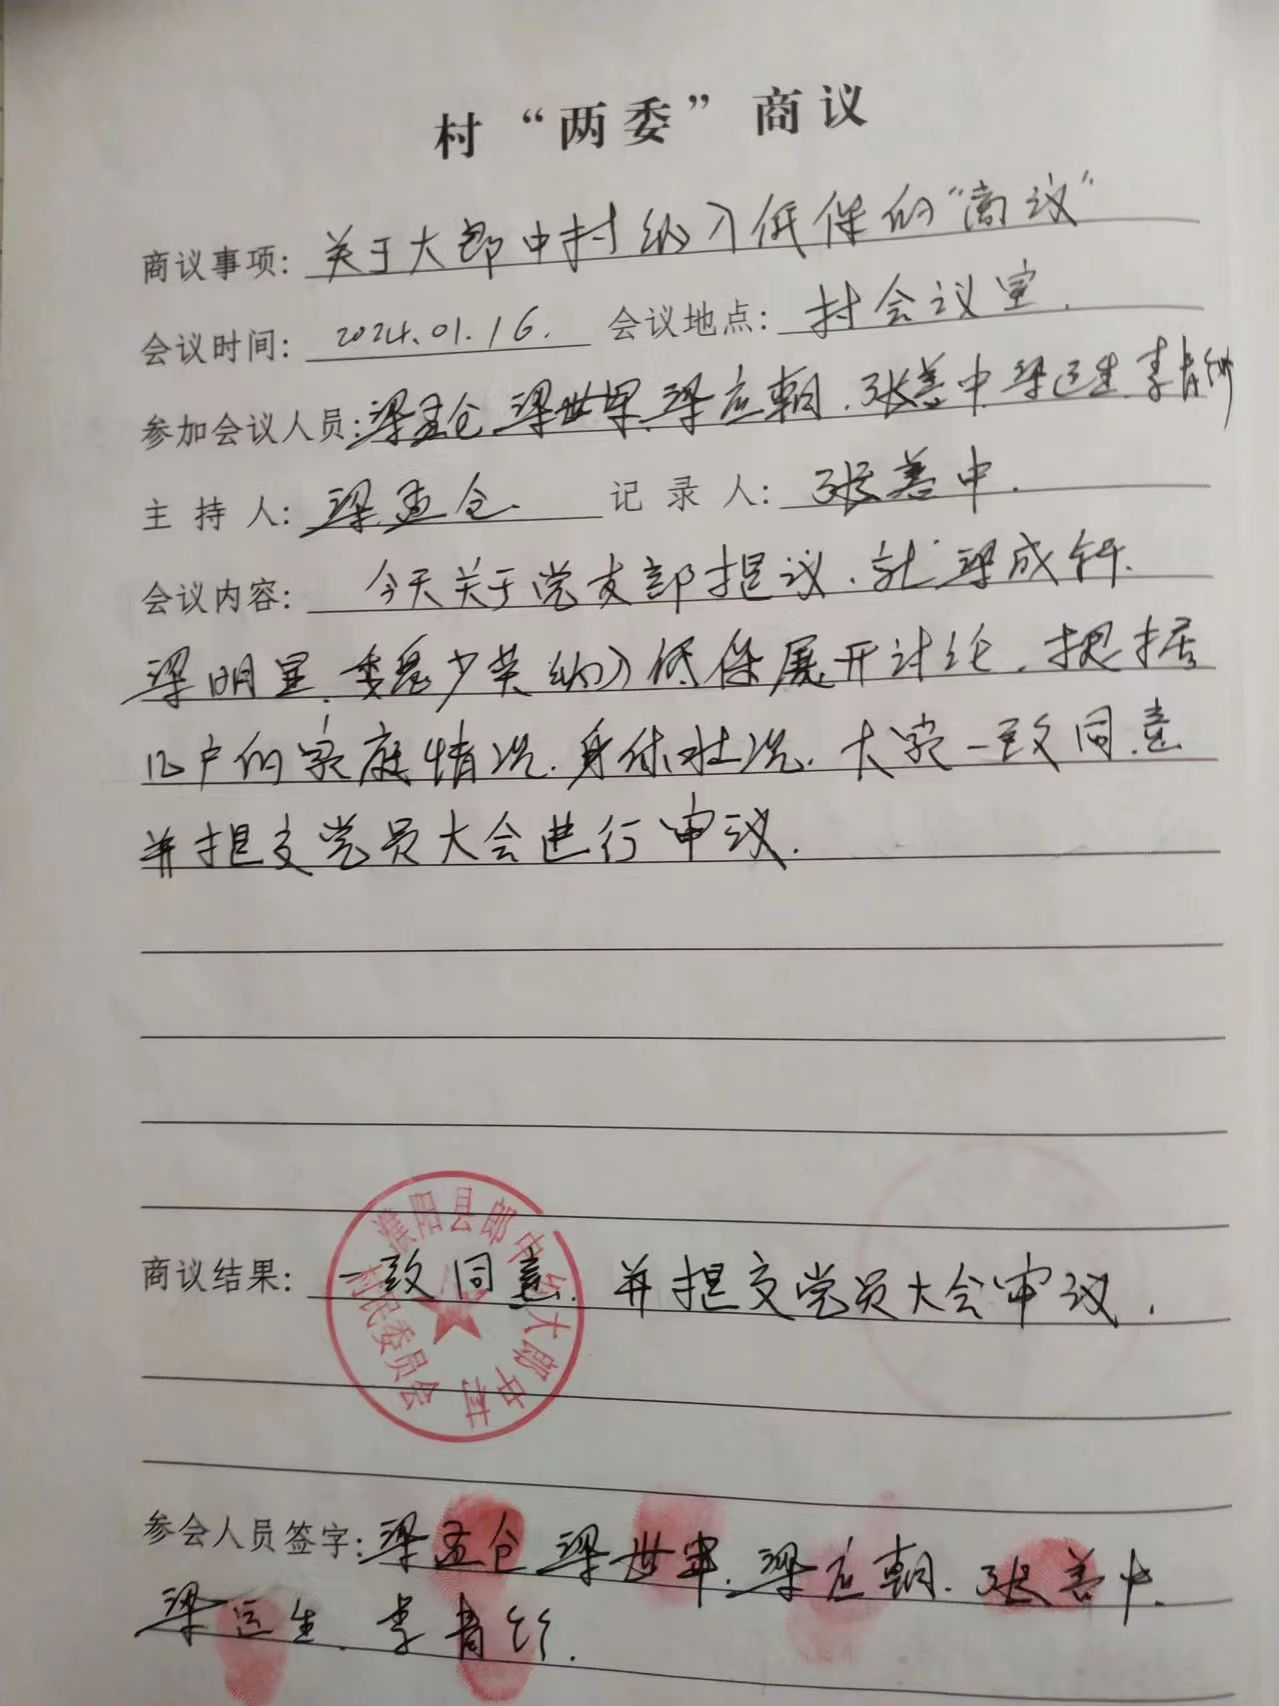 村“两委”商议
商议事项: 关于大郎中村纳入低保的“商议”
会议时间: 2024.01.16. 会议地点: 村会议室.
参加会议人员: 梁孟仓 梁世军 梁应朝. 张善中 梁运生 李青
主持人: 梁孟仓. 记录人: 张善中.
会议内容: 今天关于党支部提议. 就梁成
梁明星. 魏少英纳入低保展开讨论. 根据
几户的家庭情况. 身体状况. 大家一致同意
并提交党员大会进行审议.
商议结果: 一致同意. 并提交党员大会审议.
濮阳县郎中乡大郎中村
村民委员会
参会人员签字: 梁孟仓 梁世军. 梁应朝. 张善中.
梁运生. 李青